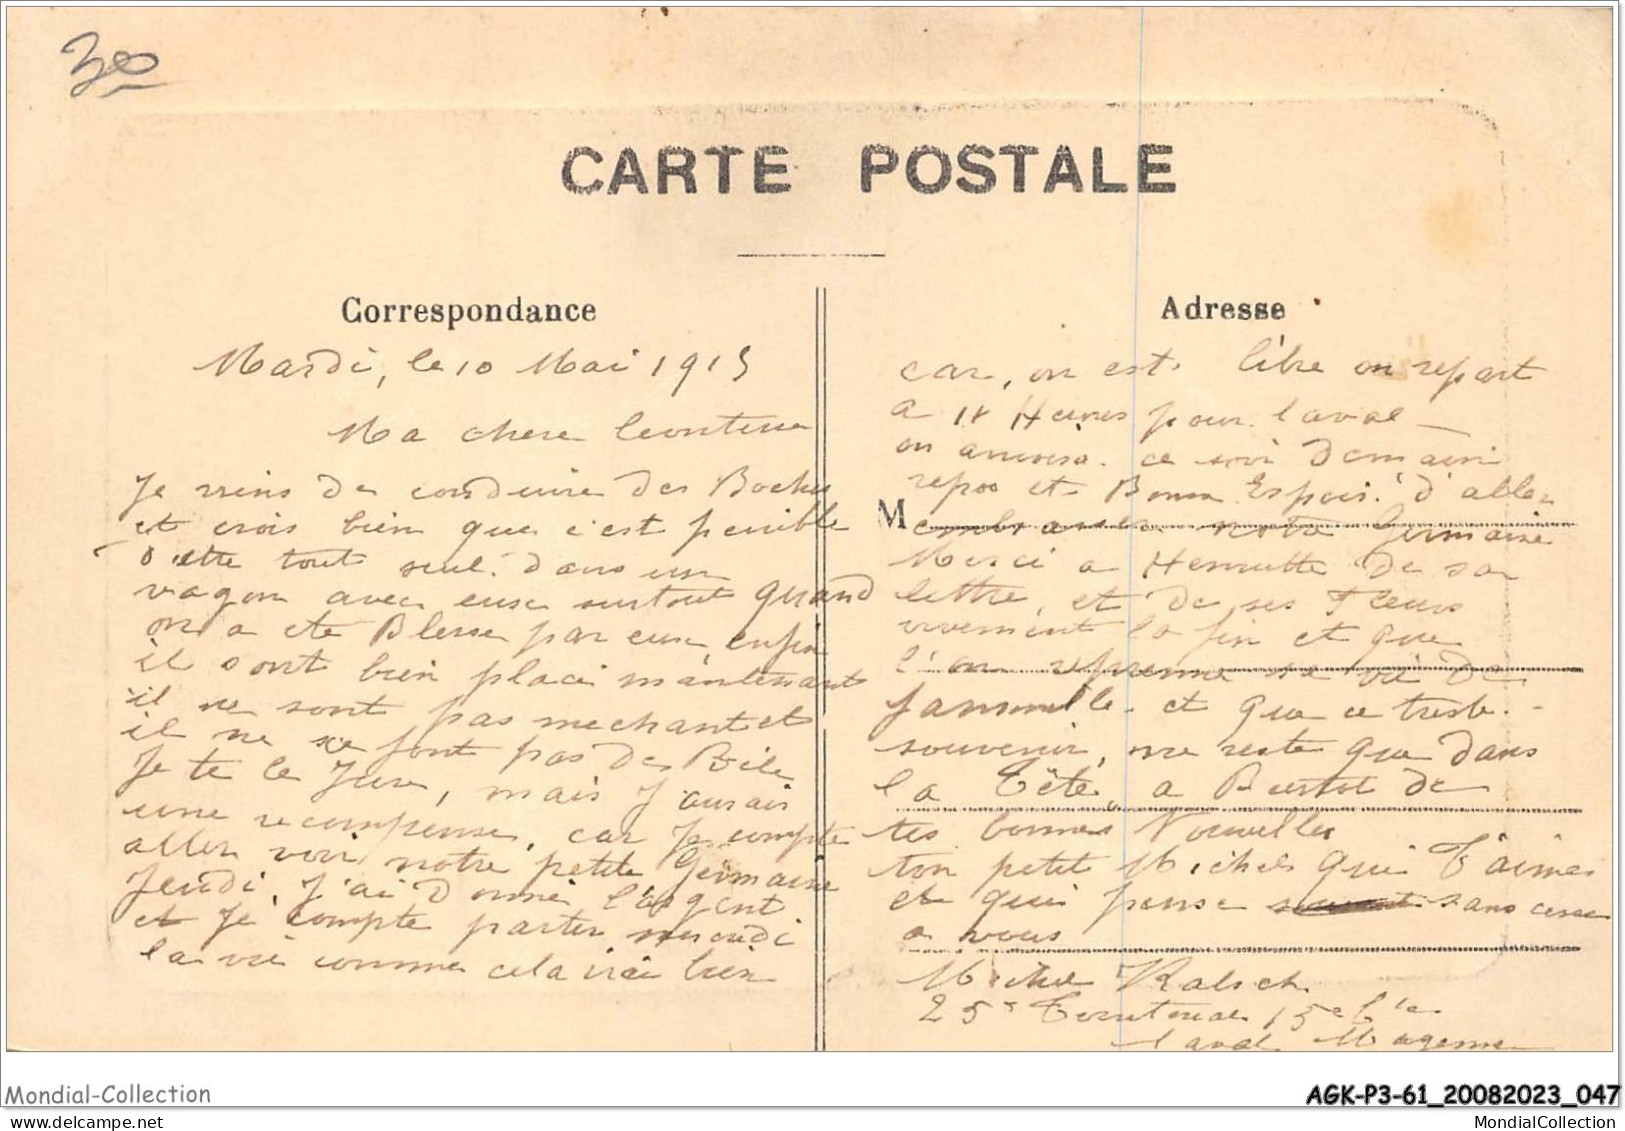 30
CARTE POSTALE
Correspondance
Mardi, le 10 Mai 1915
Ma chere Leontine
Je viens de conduire des Boches
et crois bien que c'est penible
d'etre tout seul. dans un
vagon avec euse surtout quand
on a ete Blesse par euse, enfin
il sont bien place maintenant
il ne sont pas mechant et
il ne se font pas de Bile
Je te le Jure, mais J'aurais
une recompense, car Je compte
aller voir notre petite Germaine
Jeudi, J'ai donné l'argent
et Je compte partir mercredi
la vie comme cela irai bien
Adresse
car, on est libre on repart
a 11 Heures pour laval
on arrivera ce soir demain
repos et Bonne Espoir d'aller
M embrasser notre Germaine
Merci a Henriette de sa
lettre, et de ses Fleurs
vivement la fin et que
l'on reprenne sa vie de
famille. et que ce triste
souvenir, ne reste que dans
la Tête, a Bientot de
tes bonnes Nouvelles
ton petit Michel qui T'aimes
et qui pense sans cesse
a vous
Michel Kalsch
25e Territorial 15e Cie
Laval Mayenne
Mondial-Collection
AGK-P3-61_20082023_047
MondialCollection